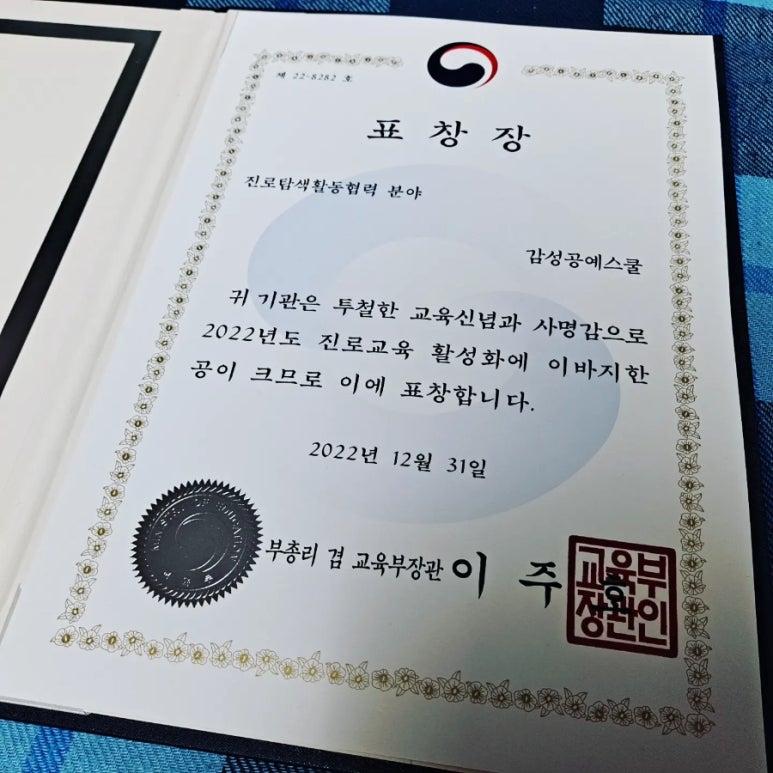 제 22-8282 호
표 창 장
진로탐색활동협력 분야
감성공예스쿨
귀 기관은 투철한 교육신념과 사명감으로
2022년도 진로교육 활성화에 이바지한
공이 크므로 이에 표창합니다.
2022년 12월 31일
MINISTRY OF EDUCATION
교육부
부총리 겸 교육부장관 이 주 호
교육부
장관인